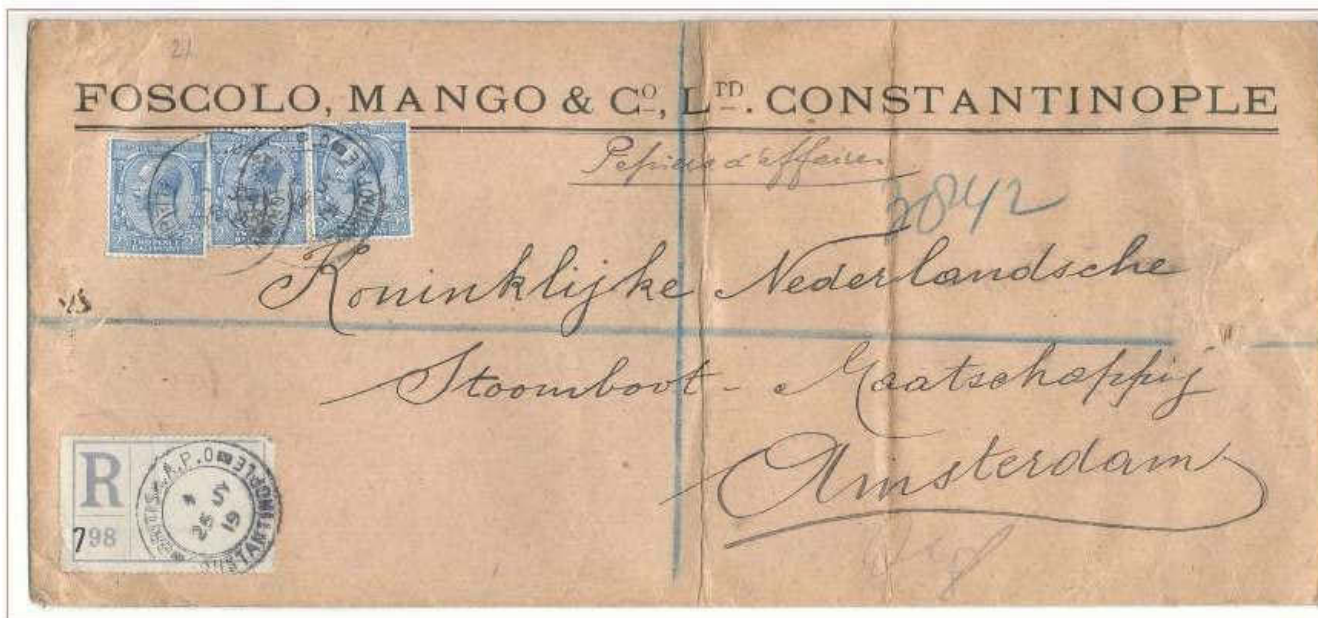 21
FOSCOLO, MANGO & Cº, Lᵀᴰ. CONSTANTINOPLE
Papiers d'affaires
3842
Koninklijke Nederlandsche
Stoomboot - Maatschappij
Amsterdam
R
798
A.P.O
CONSTANTINOPLE
25 5
19